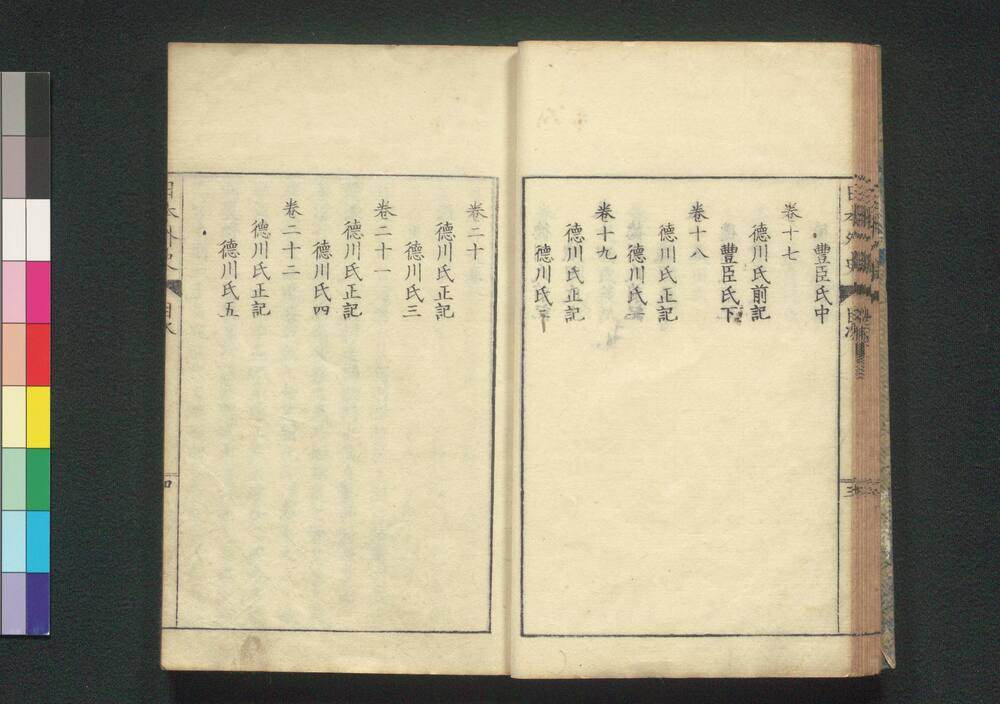 豐臣氏中
卷十七
德川氏前記
豐臣氏下
卷十八
德川氏正記
德川氏一
卷十九
德川氏正記
德川氏二
卷二十
德川氏正記
德川氏三
卷二十一
德川氏正記
德川氏四
卷二十二
德川氏五
日本外史
目次
四